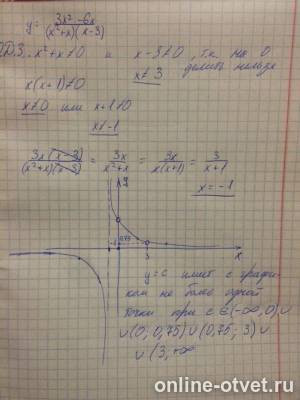 y = 3x² - 6x / (x²+x)(x-3)
О.Д.З. x²+x≠0 и x-3≠0, т.к. на 0
x≠3 делить нельзя
x(x+1)≠0
x≠0 или x+1≠0
x≠-1
3x(x-3) / (x²+x)(x-3) = 3x / x²+x = 3x / x(x+1) = 3 / x+1
x=-1
y
-1 0,75 3 x
y=c имеет с графи-
ком не более одной
точки при c∈(-∞,0)∪
∪(0; 0,75)∪(0,75; 3)∪
∪(3;+∞
online-otvet.ru